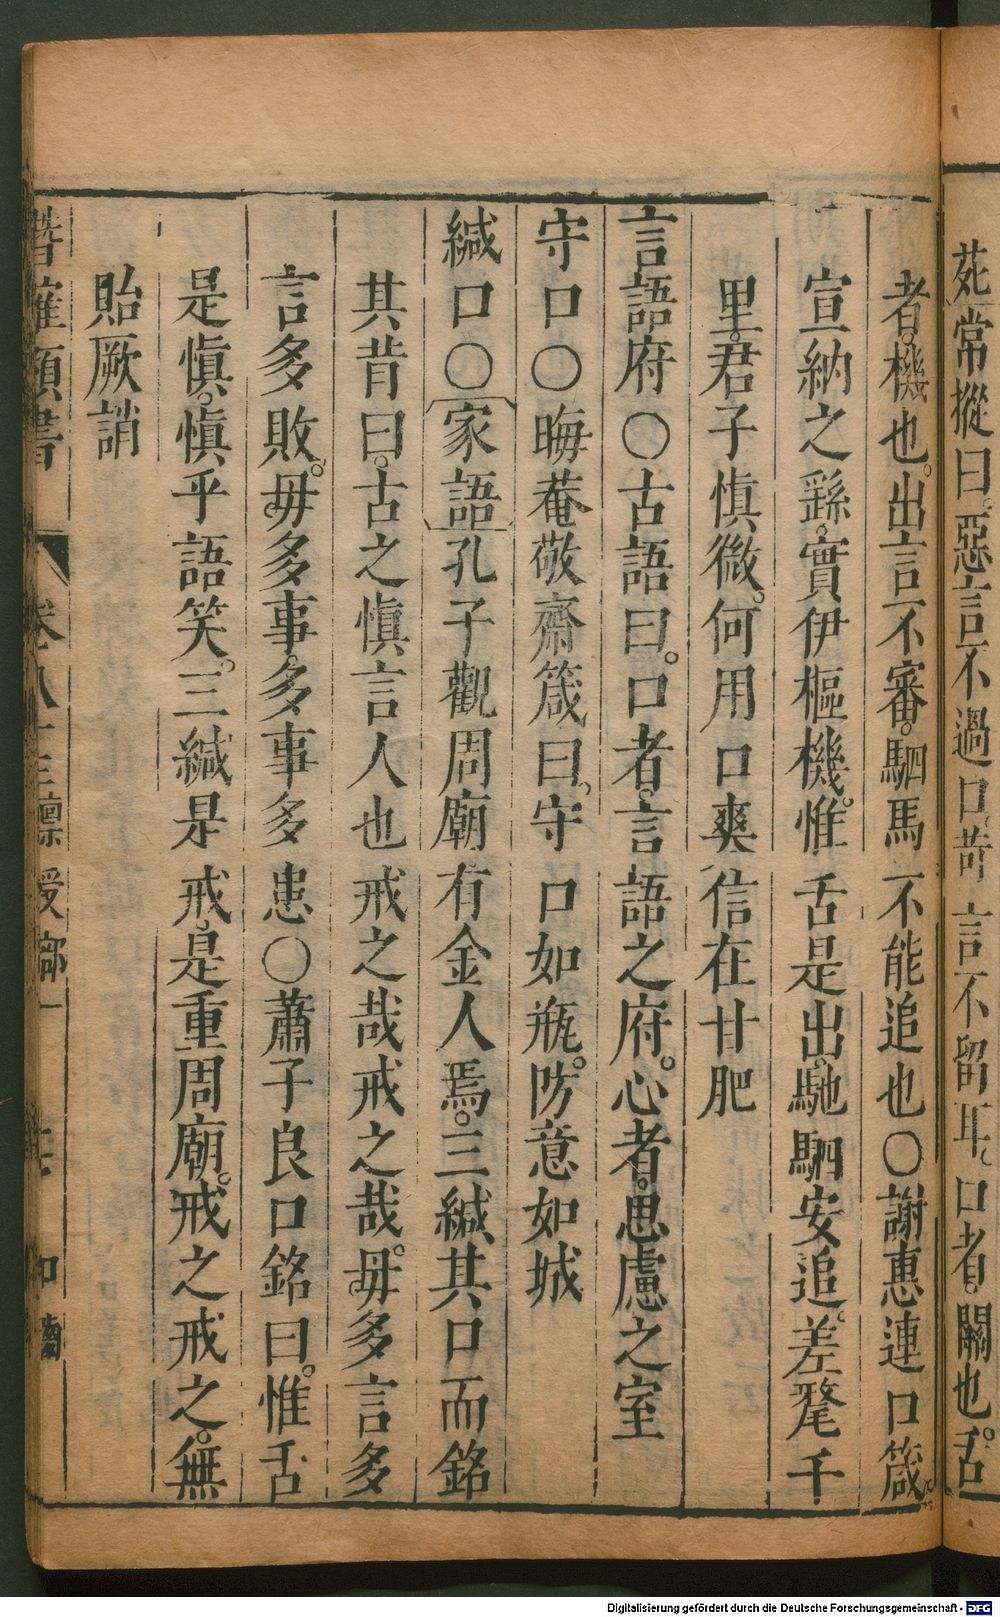 苑常摐曰惡言不過口苛言不留耳口者關也舌
者機也出言不審駟馬不能追也○謝惠連口箴
宣納之繇實伊樞機惟舌是出馳駟安追差氂千
里君子慎微何用口爽信在甘肥
言語府○古語曰口者言語之府心者思慮之室
守口○晦菴敬齋箴曰守口如瓶防意如城
緘口○家語孔子觀周廟有金人焉三緘其口而銘
其背曰古之慎言人也戒之哉戒之哉毋多言多
言多敗毋多事多事多患○蕭子良口銘曰惟舌
是慎慎乎語笑三緘是戒是重周廟戒之戒之無
貽厥誚
卷八十三 稟受部一 口齒
Digitalisierung gefördert durch die Deutsche Forschungsgemeinschaft - DFG